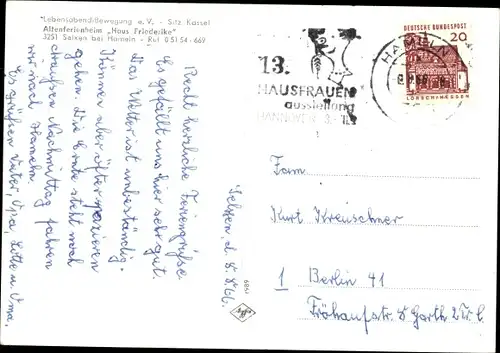 "Lebensabend-Bewegung e. V. - Sitz Kassel
Altenferienheim „Haus Friederike"
3251 Selxen bei Hameln - Ruf 0 51 54 - 669
Selxen, d. 8.8.66.
Recht herzliche Feriengrüße.
Es gefällt uns hier sehr gut.
Das Wetter ist unbeständig.
Können aber öfter spazieren
gehn. Die Ernte steht noch
draußen. Nachmittag fahren
wir nach Hameln.
Es grüßen Vater, Opa, Lotte u. Oma.
13.
HAUSFRAUEN
ausstellung
HANNOVER
HAMELN
DEUTSCHE BUNDESPOST
20
LORSCH/HESSEN
Fam.
Kurt Kreuschner
1 Berlin 41
Fröhaufstr. 8 Garth 2 Tr. l.